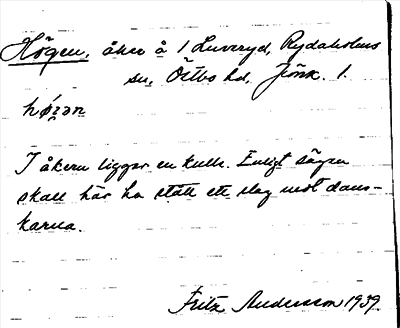 Högen, åker å 1 Luveryd, Rydaholms
sn, Östbo hd, Jönk. l.
hǿɡən
I åkern ligger en kulle. Enligt sägen
skall här ha stått ett slag mot dans-
karna.
Fritz Andersson 1939.